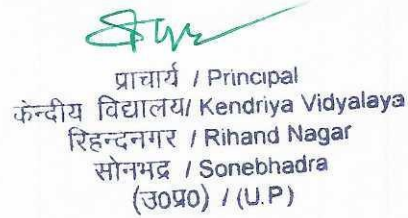 प्राचार्य / Principal
केन्दीय विद्यालय/ Kendriya Vidyalaya
रिहन्दनगर / Rihand Nagar
सोनभद्र / Sonebhadra
(उ0प्र0) / (U.P)